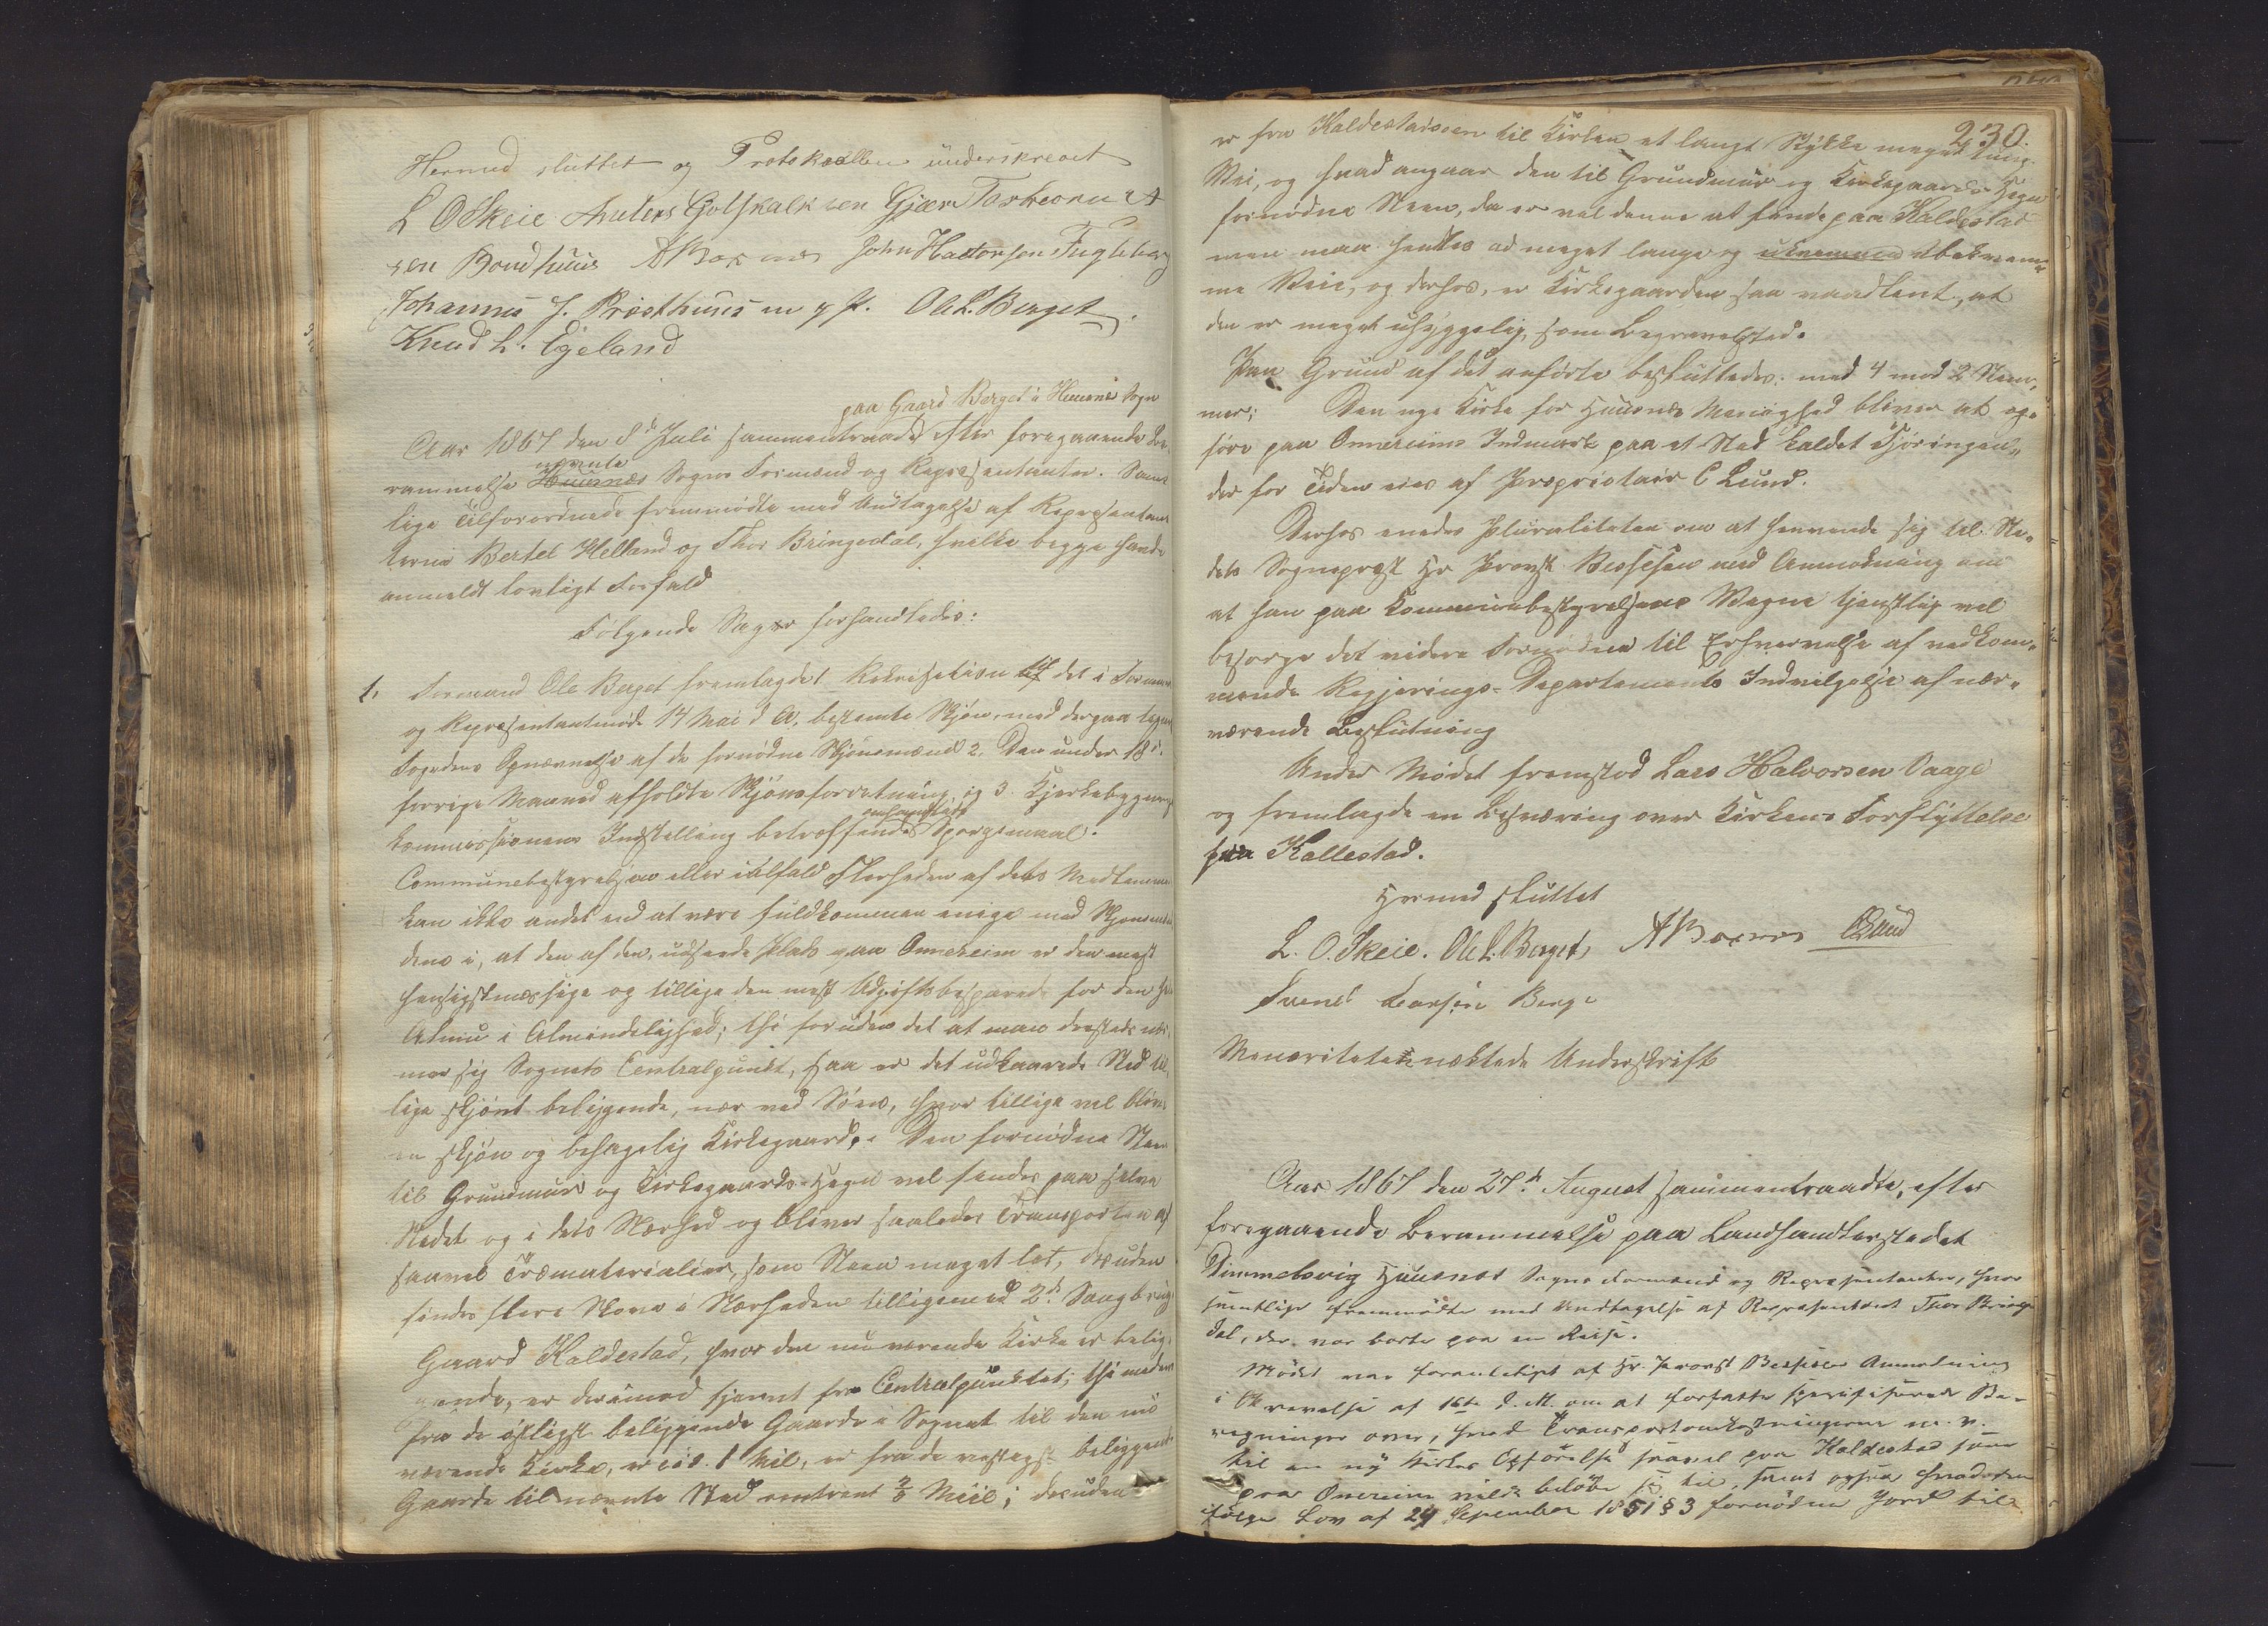 Hermed sluttet og Protokollen underskrevet
L O Skeie Anders Gotskalksen Gjæra Torbeorn A
sen Bondhuus A Boxnæs John Haktorsen Fugleberg
Johannes J. Præsthuus m. p. P. Ole L. Berget.
Knud L. Egeland
paa Gaard Berget i Huusnæs Sogn
Aar 1867 den 8de Juli sammentraadte efter foregaaende Be-
nævnte
rammelse Huusnæs Sogns Formænd og Repræsentanter. Samt
lige Tilforordnede fremmødte med Undtagelse af Repræsentan
terne Bertel Helland og Thor Bringedal, hvilke begge havde
anmeldt lovligt Forfald
Følgende Sager forhandledes:
1. Formand Ole Berget fremlagde 1 Rekvisition til det i Formands
og Repræsentantmøde 14 Mai d A. bestemte Skjøn, med derpaa tegnet
Fogedens Opnævnelse af de fornødne Skjønsmænd 2. Den under 18de
forrige Maaned afholdte Skjønsforretning, og 3. Kjerkebygnings
omhandlede
kommissionens Indstilling betræffende Spørgsmaal.
Communebestyrelsen eller ialfald Flerheden af dets Medlemmer
kan ikke andet end at være fuldkommen enige med Skjønsmæn
dene i, at den af dem udseede Plads paa Onnereim er den mest
hensigtsmæssige og tillige den mest Udgiftsbesparende for den hele
Almue i Almindelighed; thi foruden det at man dersteds nær
mer sig Sognets Centralpunkt, saa er det udkaarede Sted til
lige skjønt beliggende, nær ved Søen, hvor tillige vil blive
en skjøn og behagelig Kirkegaard. Den fornødne Steen
til Grundmur og Kirkegaards-Hegn vil findes paa selve
Stedet og i dets Nærhed og bliver saaledes Transporten af
saavel Træmaterialier, som Steen meget let, desuden
findes flere Skove i Nærheden tilligemed 2de Saugbrug
Gaard Kaldestad, hvor den nuværende Kirke er belig-
gende, er derimod fjernet fra Centralpunktet; thi medens
fra de østligst beliggende Gaarde i Sognet til den nu
værende Kirke, er c. 1 Mil, er fra de vestligst beliggende
Gaarde til nævnte Sted omtrent Miil; desuden
230.
er fra Kaldestadsøen til Kirken et langt Stykke meget tung
Vei, og hvad angaar den til Grundmur og Kirkegaards-Hegn
fornødne Steen, da er vel denne at finde paa Kaldestad
men maa hentes ad meget lange og ubekvemme ubekvem
me Veie, og derhos, er Kirkegaarden saa vandlent, at
den er meget uhyggelig, som Begravelsted.
Paa Grund af det anførte besluttedes: med 4 mod 2 Stem-
mer; Den nye Kirke for Huusnæs Menighed bliver at op-
føre paa Onnereims Indmark paa et Sted kaldet Kjøringen,
der for Tiden eies af Proprietair C Lund.
Derhos enedes Pluraliteten om at henvende sig til Ste-
dets Sognepræst Hr Provst Bessesen med Anmodning om
at han paa Kommunebestyrelsens Vegne tjenstlig vil
besørge det videre Fornødne til Erhvervelse af vedkom-
mende Regjerings-Departements Indvilgelse af nær-
værende Beslutning
Under Mødet fremstod Lars Halvorsen Vaage
og fremlagde en Besværing over Kirkens Forflyttelse
fra Kallestad.
Hermed sluttet
L. O. Skeie. Ole L. Berget, A Boxnæs CLund
Svend Larsen Berge
Menoriteten nektede Underskrift
Aar 1867 den 27de August sammentraadte, efter
foregaaende Berammelse paa Landhandlerstedet
Dimmelsvig Huusnæs Sogns Formænd og Repræsentanter, hvor
samtlige fremmødte med Undtagelse af Repræsentant Thor Bringe
dal, der var borte paa en Reise.
Mødet var foranlediget af Hr. Provst Bessesens Anmodning
i Skrivelse af 16de d. M. om at forfatte specificerede Be-
regninger over, hvad Transportomkostningerne m. v.
til en ny Kirkes Opførelse saavel paa Kaldestad som
paa Onereim vilde beløbe sig til, samt ogsaa hvad den
ifølge Lov af 24 September 1851 § 3 fornødne Jord til